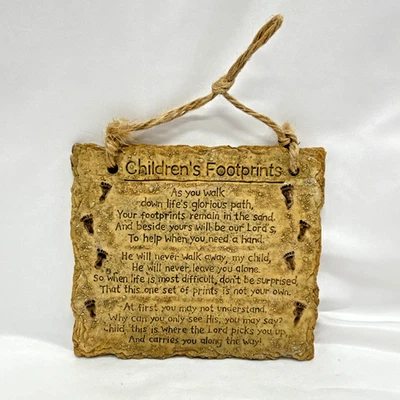 Children's Footprints
As you walk
down life's glorious path,
Your footprints remain in the sand.
And beside yours will be our Lord's,
To help when you need a hand.
He will never walk away, my child,
He will never leave you alone.
So when life is most difficult, don't be surprised,
That this one set of prints is not your own.
At first you may not understand.
Why can you only see His, you may say?
Child, this is where the Lord picks you up
And carries you along the way!